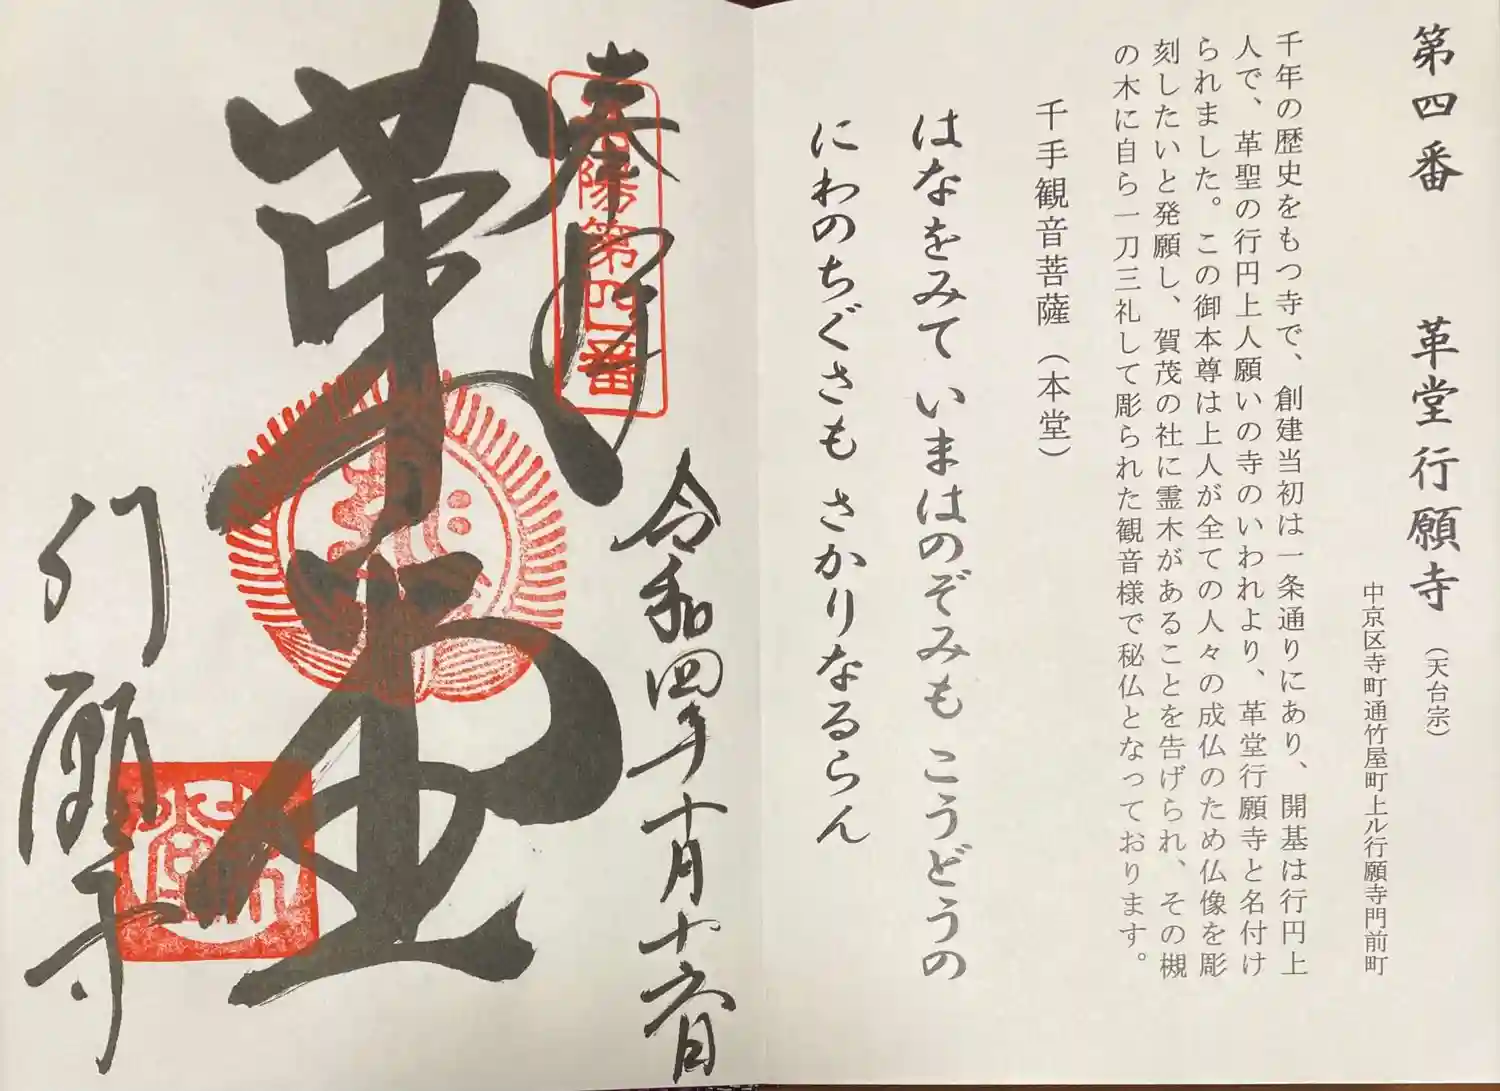 第四番　革堂行願寺（天台宗）
中京区寺町通竹屋町上ル行願寺門前町
千年の歴史をもつ寺で、創建当初は一条通りにあり、開基は行円上
人で、革聖の行円上人願いの寺のいわれより、革堂行願寺と名付け
られました。この御本尊は上人が全ての人々の成仏のため仏像を彫
刻したいと発願し、賀茂の社に霊木があることを告げられ、その槻
の木に自ら一刀三礼して彫られた観音様で秘仏となっております。
千手観音菩薩（本堂）
はなをみて いまはのぞみも こうどうの
にわのちぐさも さかりなるらん
奉拝
洛陽第四番
令和四年十月十六日
革堂
行願寺